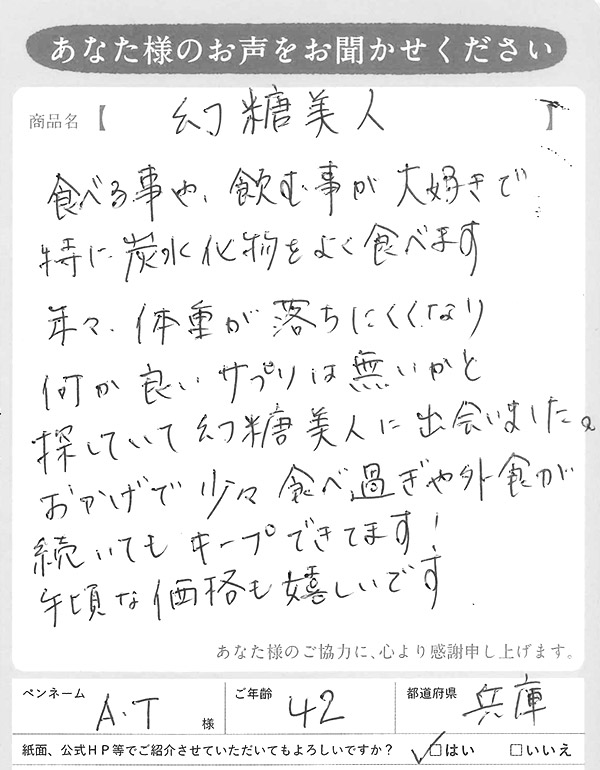 あなた様のお声をお聞かせください
商品名【 幻糖美人 】
食べる事や、飲む事が大好きで
特に炭水化物をよく食べます
年々、体重が落ちにくくなり
何か良いサプリは無いかと
探していて幻糖美人に出会いました。
おかげで少々食べ過ぎや外食が
続いてもキープできてます!
年頃な価格も嬉しいです
あなた様のご協力に、心より感謝申し上げます。
ペンネーム A.T 様 ご年齢 42 都道府県 兵庫
紙面、公式HP等でご紹介させていただいてもよろしいですか? ☑はい □いいえ